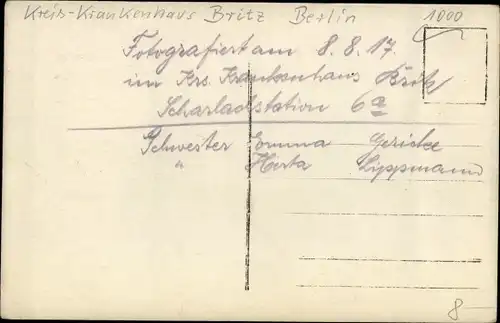 Kreis-Krankenhaus Britz Berlin 1000
Fotografiert am 8.8.17.
im Krs. Krankenhaus Britz
Scharlachstation 6a
Schwester Emma Gericke
" Herta Lippmann
8-